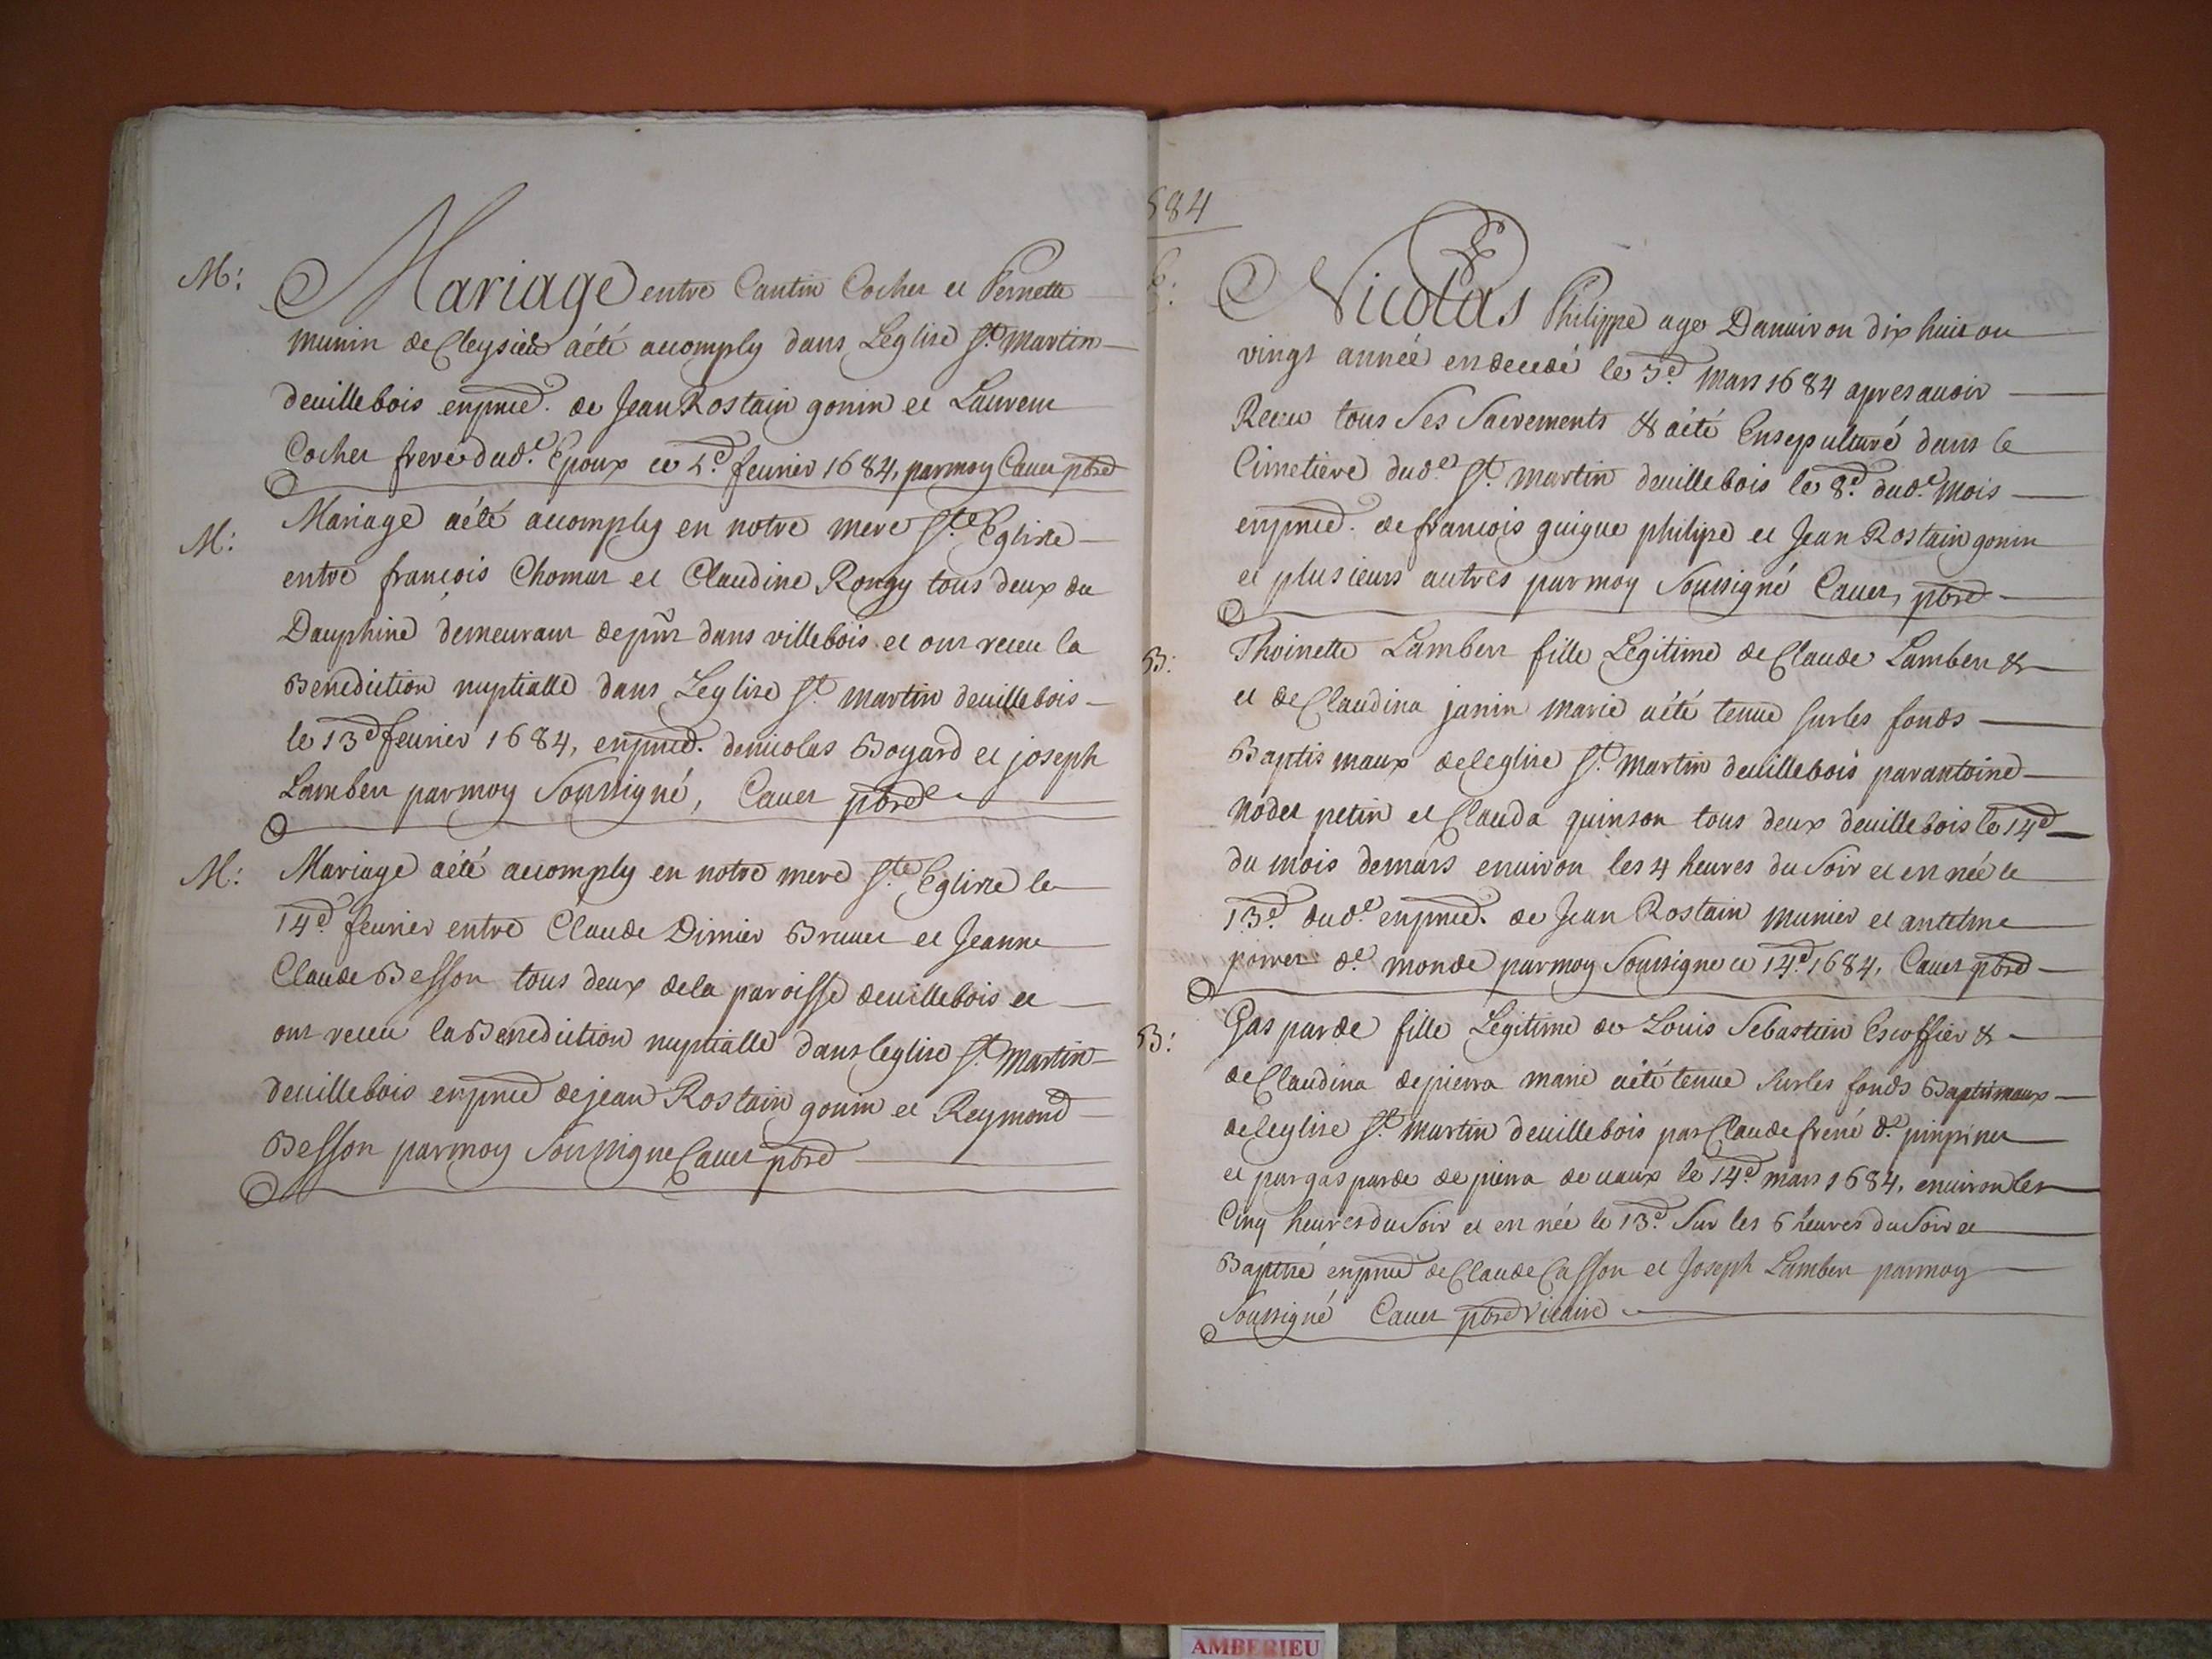 M:
Mariage entre Cantin Cocher et Pernette
munin de Cleysieu aété accomply dans Leglise St. Martin
deuillebois enpnce. de Jean Rostain gonin et Laurent
Cocher frere dud.t Epoux ce d. feurier 1684, parmoy Cauet pbre
M:
Mariage aété accomply en notre mere Ste. Eglise
entre francois Chomat et Claudine Rongy tous deux du
Dauphiné demeurant depnt dans villebois et ont receu la
Benediction nuptialle dans Leglise St. martin deuillebois
le 13d feurier 1684, enpnce. denicolas Bogard et joseph
Lambert parmoy Soussigné, Cauet pbre
M:
Mariage aété accomply en notre mere Ste. Eglise le
14d. feurier entre Claude Dimier Brunet et Jeanne
Claude Besson tous deux dela paroisse deuillebois et
ont receu la Benediction nuptialle dans leglise St. Martin
deuillebois enpnce de jean Rostain gonin et Reymond
Besson parmoy Soussigne Cauet pbre
684
Nicolas Philippe age Danuiron dix huit ou
vingt année en decedé le d. Mars 1684 apres auoir
Receu tous Ses Sacrements & aété Ensepulturé dans le
Cimetiere dud.t St. martin deuillebois le 8d. dud.t Mois
enpnce. de francois guigue philipe et Jean Rostain gonin
et plusieurs autres parmoy Soussigné Cauet, pbre
B:
Thoinette Lambert fille Legitime de Claude Lambert &
et de Claudina janin marié aété tenue sur les fonds
Baptismaux deleglise St. Martin deuillebois parantoine
nodet petin et Clauda quinson tous deux deuillebois le 14d
du mois demars enuiron les 4 heures du Soir et en née le
13d. dud.t enpnce. de Jean Rostain munier et antelme
d.t monde parmoy Soussigne ce 14d. 1684, Cauet pbre
B:
Gasparde fille Legitime de Louis Sebastien Escoffier &
de Claudina depierra marié aété tenue Sur les fonds Baptismaux
deleglise St. Martin deuillebois par Claude frené d.t pinpinet
et par gasparde de pierra de uaux le 14d. mars 1684, enuiron les
Cinq heures du Soir et en née le 13d. Sur les 6 heures du Soir et
Baptisé enpnce de Claude Casson et Joseph Lambert parmoy
Soussigné Cauet pbre vicaire
AMBERIEU